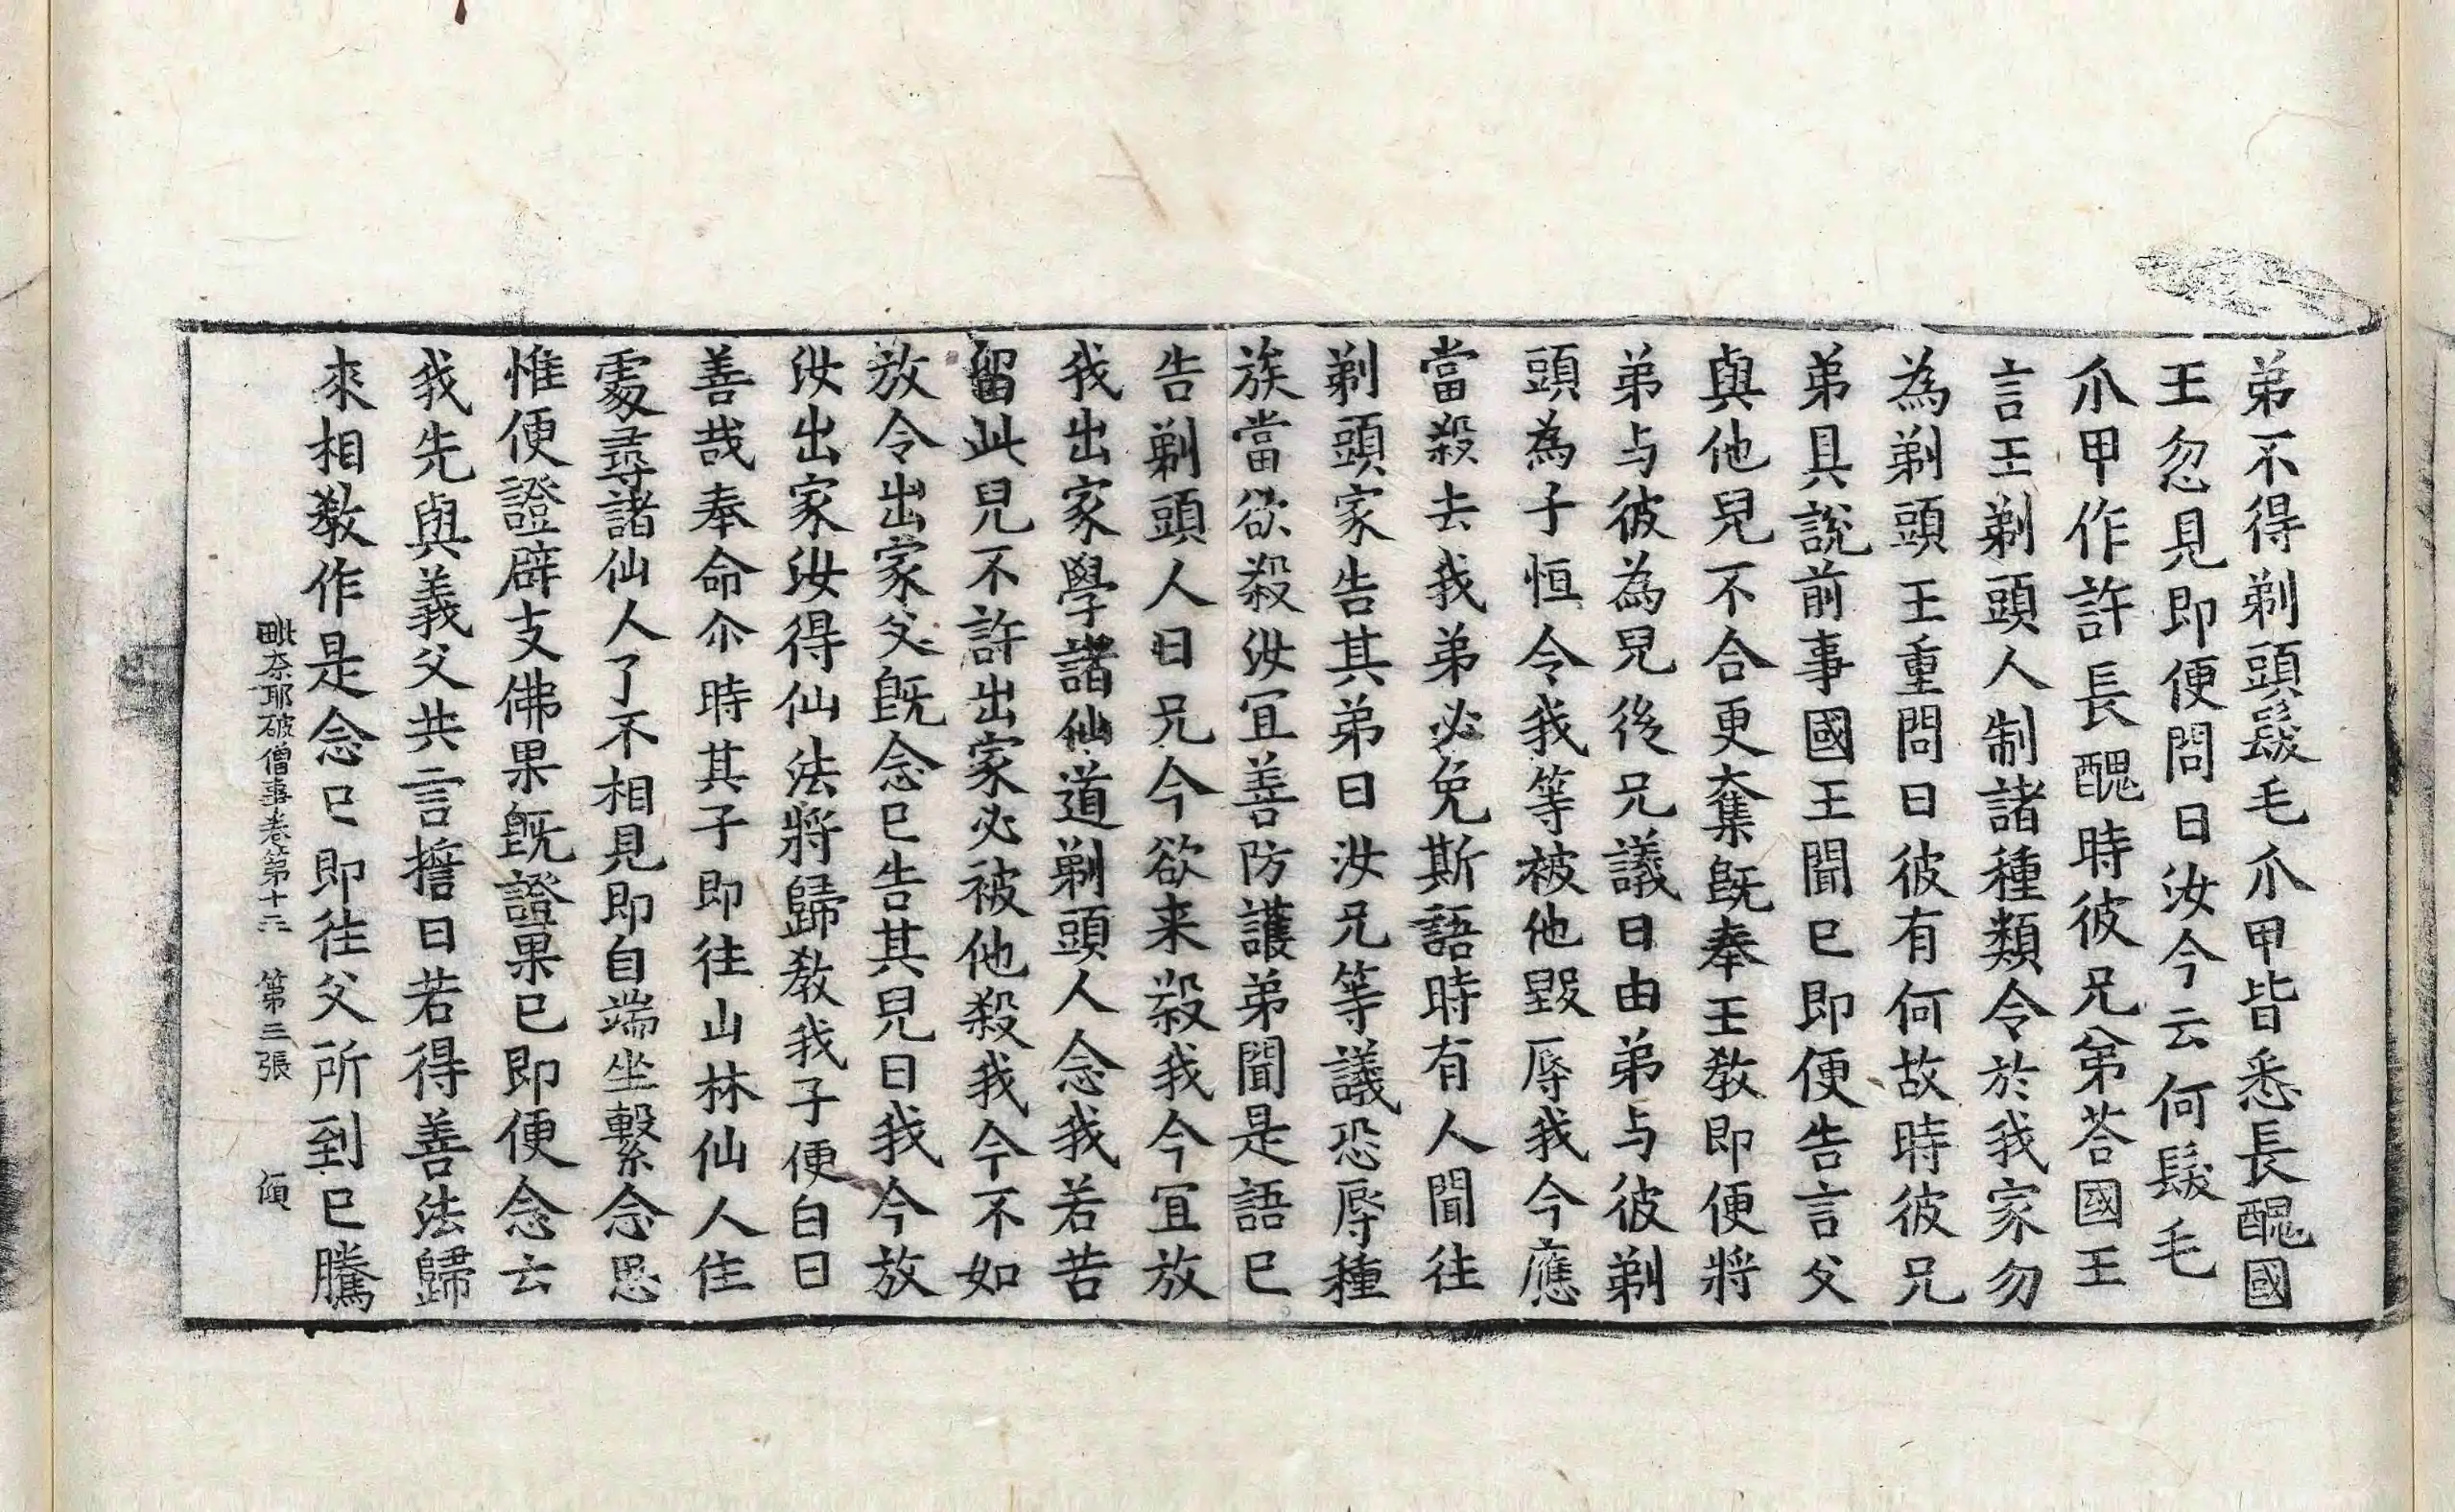 弟不得剃頭髮毛爪甲皆悉長醜國
王忽見即便問曰汝今云何髮毛
爪甲作許長醜時彼兄弟荅國王
言王剃頭人制諸種類令於我家勿
為剃頭王重問曰彼有何故時彼兄
弟具説前事國王聞已即便告言父
與他兒不合更奪既奉王教即便將
弟与彼為兒後兄議曰由弟与彼剃
頭為子恒令我等被他毀辱我今應
當殺去我弟必免斯語時有人聞往
剃頭家告其弟曰汝兄等議恐辱種
族當欲殺汝宜善防護弟聞是語已
告剃頭人曰兄今欲来殺我今宜放
我出家學諸仙道剃頭人念我若苦
留此兒不許出家必被他殺我今不如
放令出家父既念已告其兒曰我今放
汝出家汝得仙法將歸教我子便白曰
善哉奉命尒時其子即往山林仙人住
處尋諸仙人了不相見即自端坐繫念思
惟便證辟支佛果既證果已即便念云
我先與義父共言擔曰若得善法歸
來相教作是念已即往父所到已騰
毗奈耶破僧事卷第十二　第三張　傾